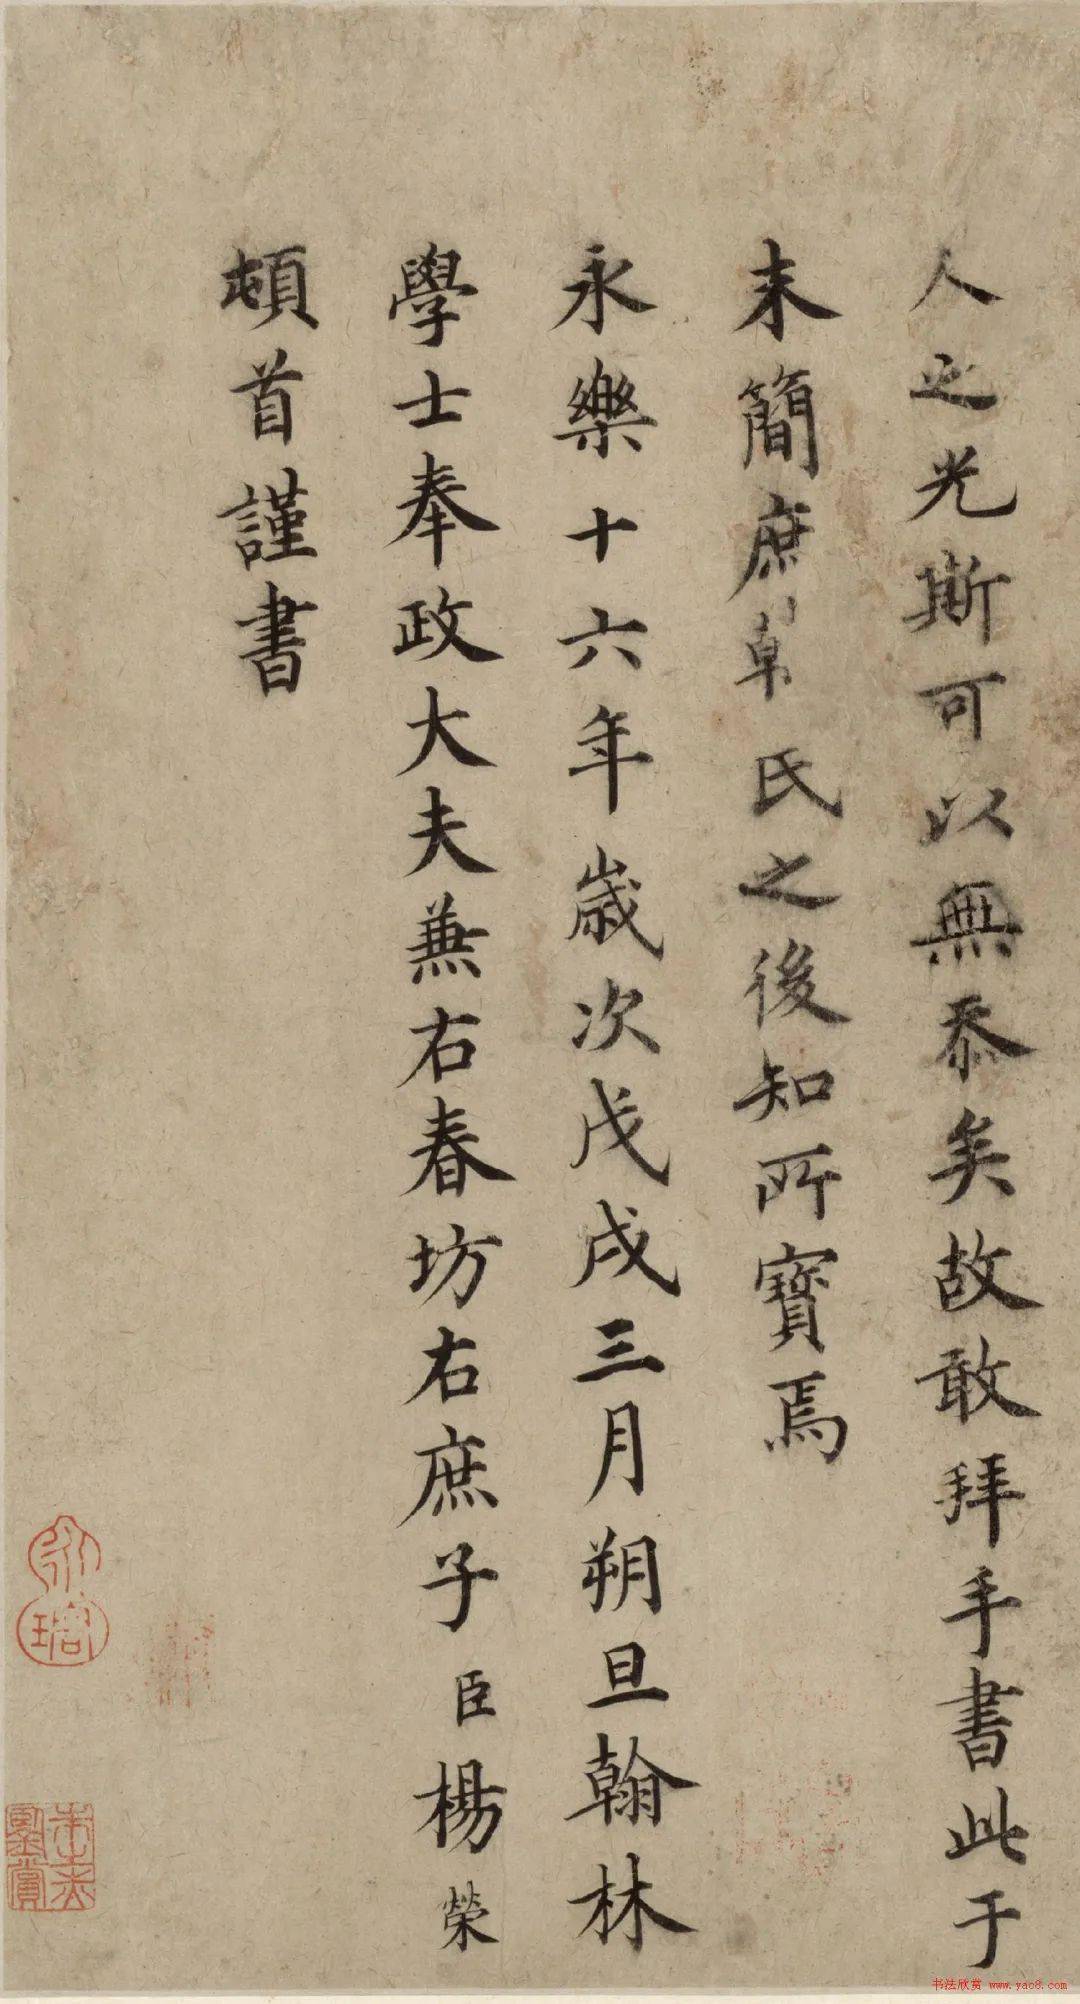 人之光斯可以無忝矣故敢拜手書此于
末簡庶 氏之後知所寶焉
永樂十六年歲次戊戌三月朔旦翰林
學士奉政大夫兼右春坊右庶子臣楊榮
頓首謹書
书法欣赏 www.yac8.com